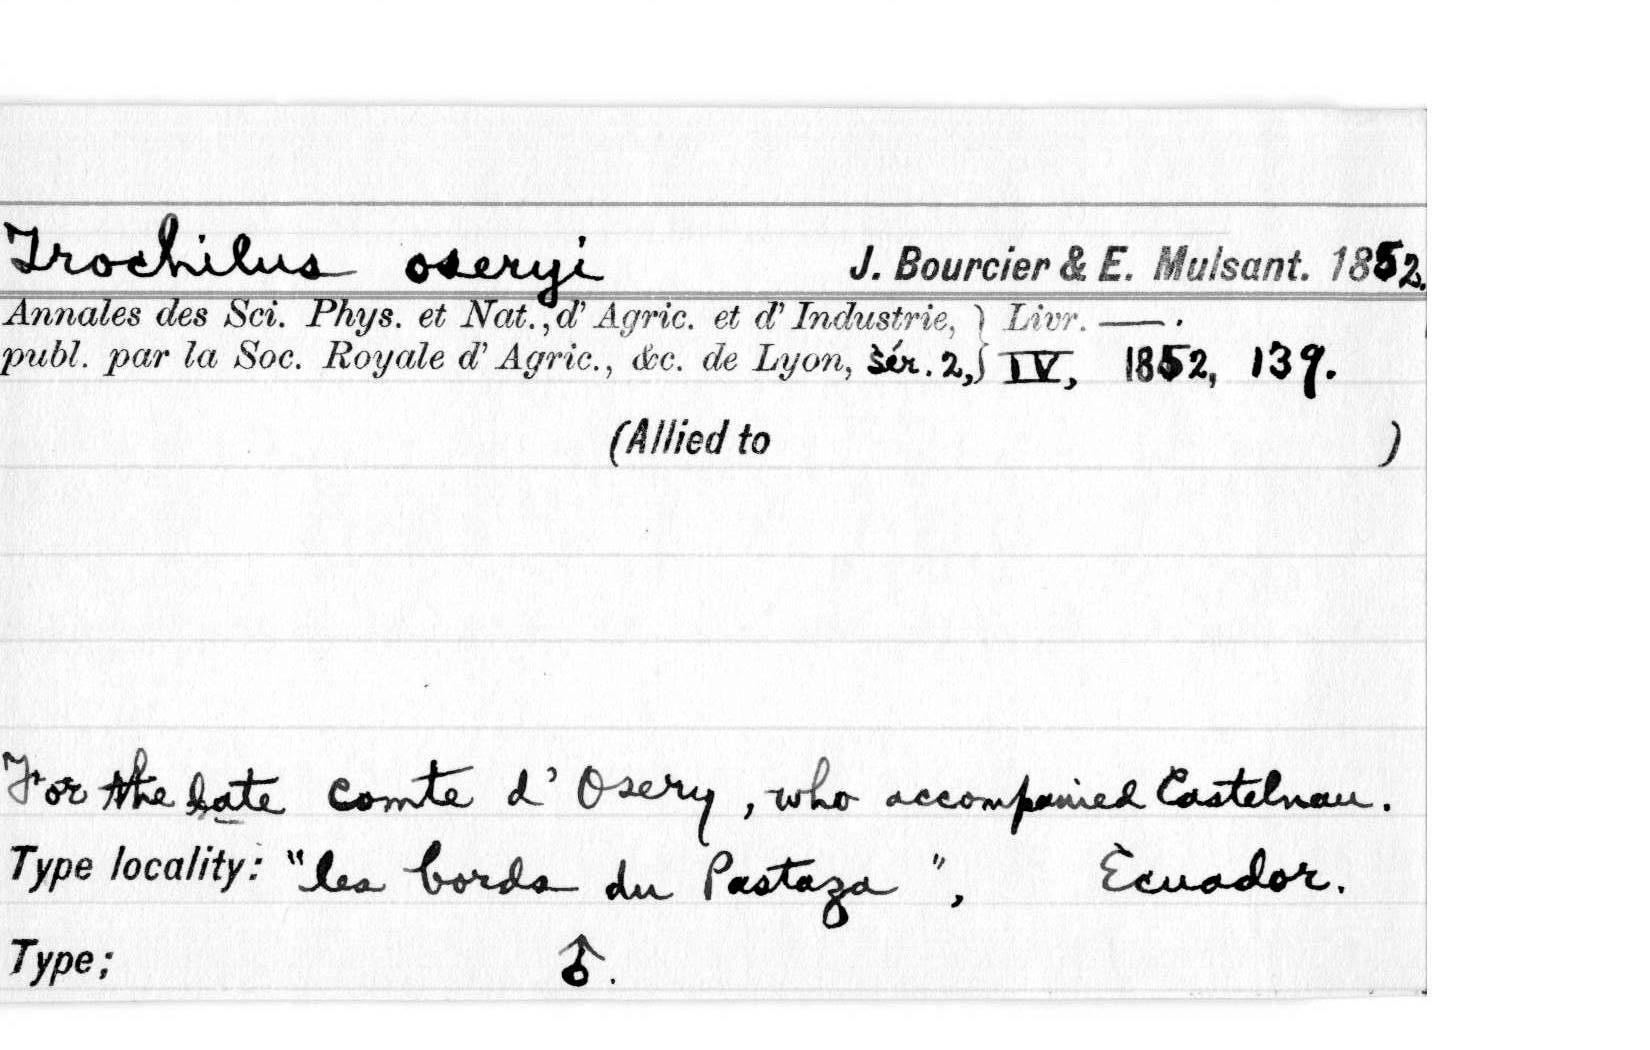 Trochilus oseryi J. Bourcier & E. Mulsant. 1852.
Annales des Sci. Phys. et Nat., d' Agric. et d' Industrie, } Livr. —.
publ. par la Soc. Royale d' Agric., &c. de Lyon, sér. 2, } IV, 1852, 139.
(Allied to )
For the late comte d' Osery, who accompanied Castelnau.
Type locality: "les bords du Pastaza", Ecuador.
Type; ♂.